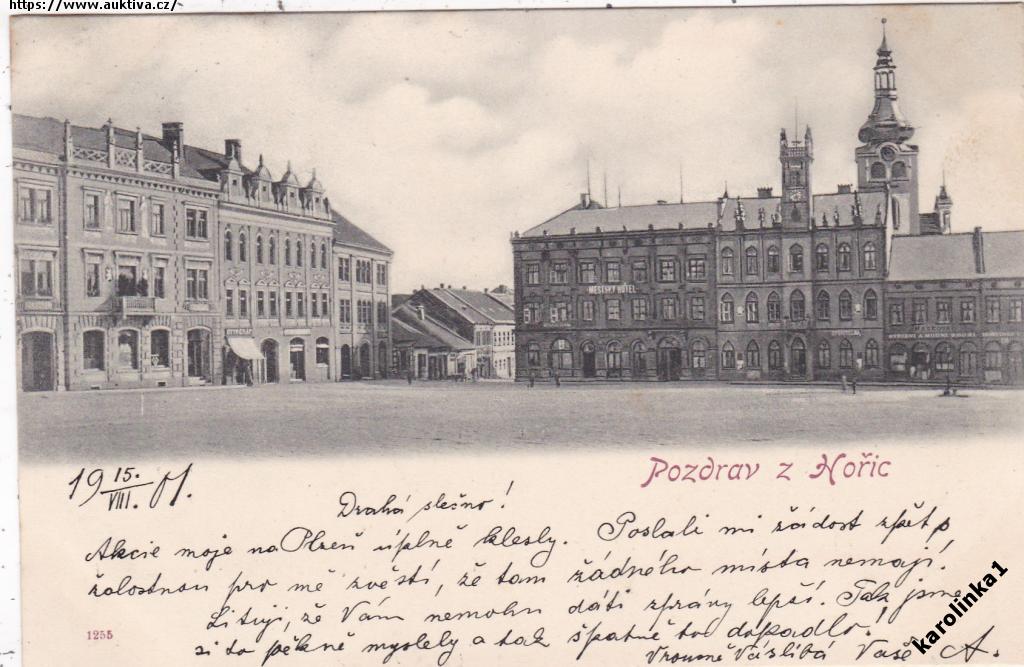 https://www.auktiva.cz/
MĚSTSKÝ HOTEL
Pozdrav z Hořic
19 15./VIII. 01.
Drahá slečno!
Akcie moje na Plzeň úplně klesly. Poslali mi žádost zpět s
žalostnou pro mě zvěstí, že tam žádného místa nemají.
Lituji, že Vám nemohu dáti zprávy lepší. Tak jsme
si to pěkně myslely a tak špatně to dopadlo!
Vroucně Vás líbá Vaše A.
1255
karolinka1